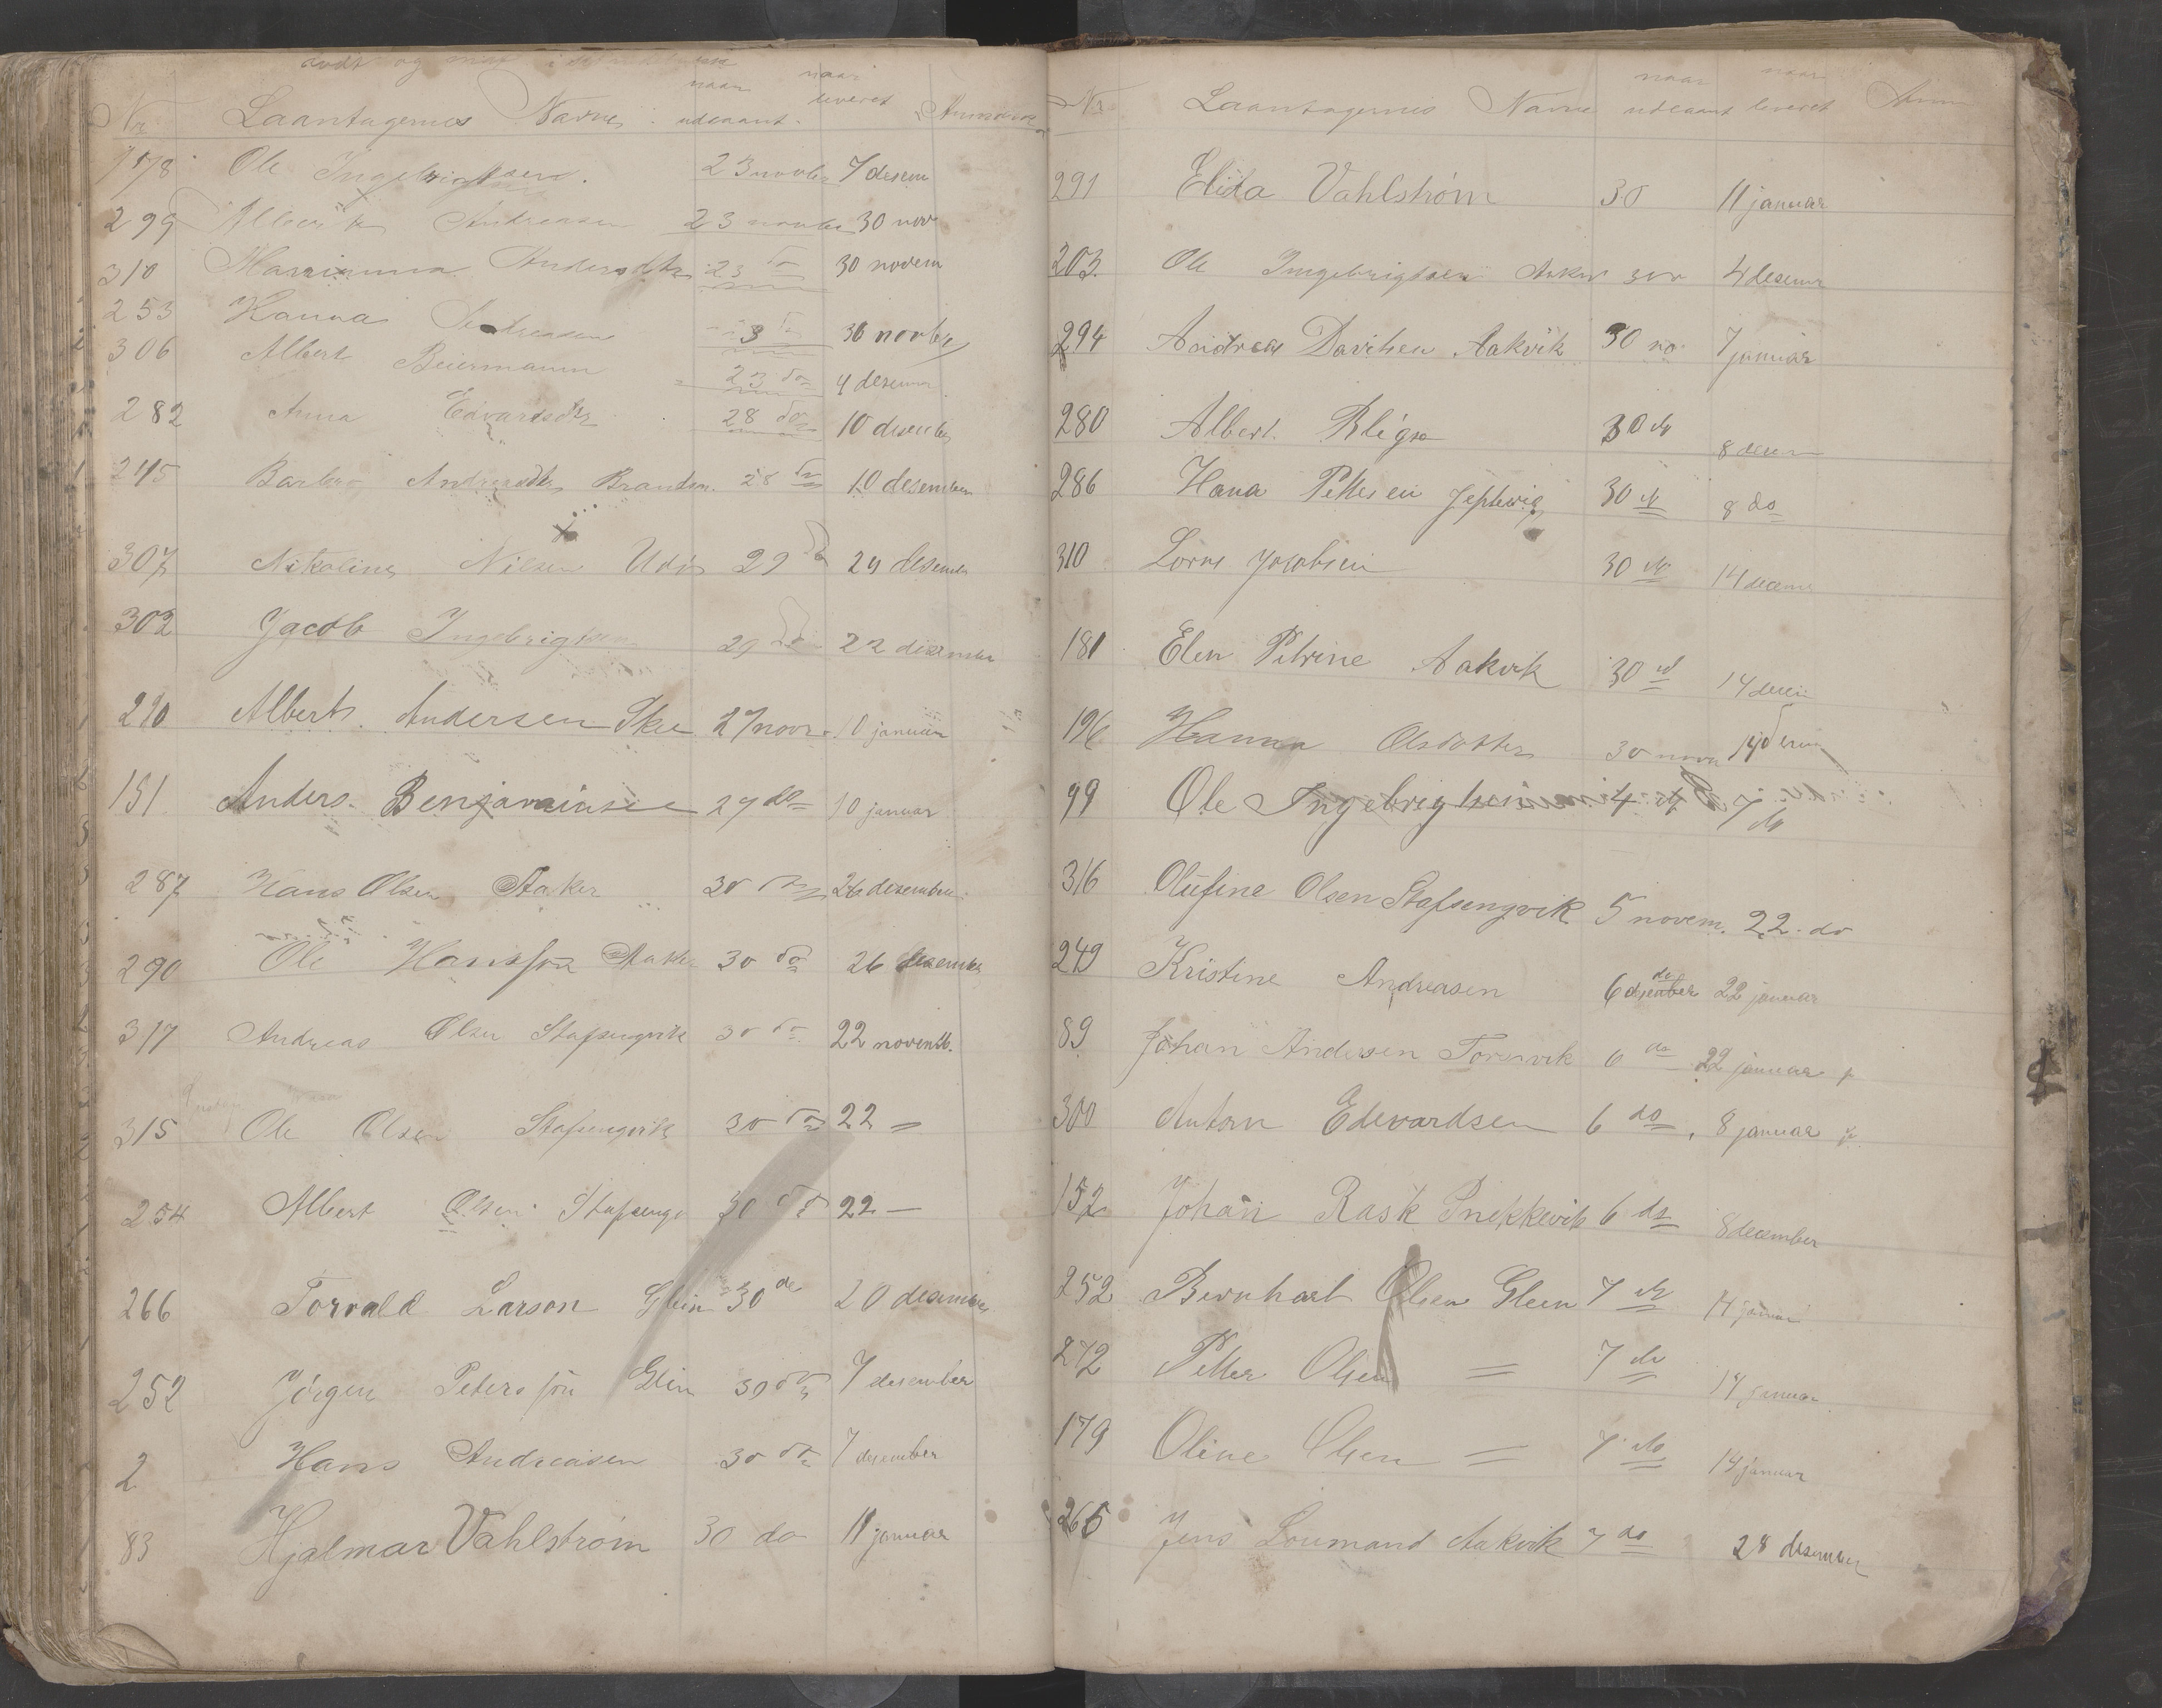 naar naar
Nr Laantagernes Navne udlaant leveret
178 Ole Ingebrigtsen 23 novbr 7 desem
299 Andreasen 23 novbr 30 nov
310 Marianna Andersdtr 23 do 30 novem
253 Hanna Andreasen 30 novbr
306 Albert Beiermann 23 do 4 desem
282 Anna Edvardsdtr 28 do 10 desember
245 Andreasdtr 28 do 10 desember
307 Nikoline Nilsen 29 do 29 desember
302 Jacob Ingebrigtsen 29 do 22 desember
210 Albert Andersen 27 novr 10 januar
151 Anders Benjaminsen 27 do 10 januar
287 Hans Olsen Aaker 30 do 26 desember
290 Ole Hansson Aaker 30 do 26 desember
317 Andreas Olsen Stafsengvik 30 do 22 novemb.
315 Ole Olsen Stafsengvik 30 do 22 =
254 Albert Olsen Stafseng 30 do 22 —
266 Torvald Larson Glein 30 do 20 desember
252 Jörgen Petersson Glein 30 do 7 desember
2 Hans Andreasen 30 do 7 desember
83 Hjalmar Vahlström 30 do 11 januar
naar naar
Nr Laantagernes Navne udlaant leveret Anm
291 Elida Vahlström 30 11 januar
203. Ole Ingebrigtsen Aaker 30 4 desem
294 Andreas Davitsen Aakvik 30 no 7 januar
280 Albert 30 do 8 desem
286 Hana Pettersen 30 do 8 do
310 Jacobsen 30 do 14 decem
181 Elen Petrine Aakvik 30 do 14 decem
196 Hanna Olsdotter 30 nov 14 decem
99 Ole Ingebrigtsen 4 do 7 do
316 Olufine Olsen Stafsengvik 5 novem. 22. do
249 Kristine Andreasen 6 desember 22 januar
89 Johan Andersen 6 do 22 januar
300 Anton Edevardsen 6 do 8 januar
152 Johan Rask Snekkevik 6 do 8 december
252 Bernhart Olsen Glein 7 do 14 januar
272 Petter Olsen = 7 do 14 januar
179 Oline Olsen = 7 do 14 januar
265 Jens Aakvik 7 do 28 desember